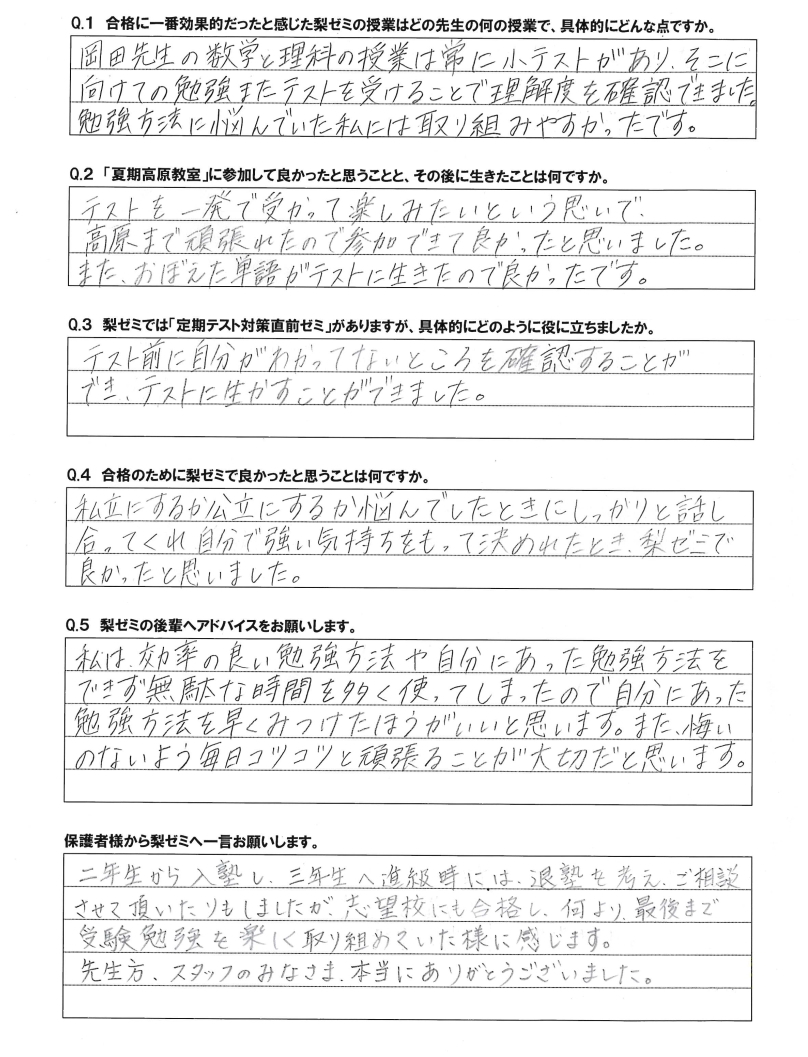 Q.1 合格に一番効果的だったと感じた梨ゼミの授業はどの先生の何の授業で、具体的にどんな点ですか。
岡田先生の数学と理科の授業は常に小テストがあり、そこに
向けての勉強またテストを受けることで理解度を確認できました。
勉強方法に悩んでいた私には取り組みやすかったです。
Q.2 「夏期高原教室」に参加して良かったと思うことと、その後に生きたことは何ですか。
テストを一発で受かって楽しみたいという思いで、
高原まで頑張れたので参加できて良かったと思いました。
また、おぼえた単語がテストに生きたので良かったです。
Q.3 梨ゼミでは「定期テスト対策直前ゼミ」がありますが、具体的にどのように役に立ちましたか。
テスト前に自分がわかってないところを確認することが
でき、テストに生かすことができました。
Q.4 合格のために梨ゼミで良かったと思うことは何ですか。
私立にするか公立にするか悩んでしたときにしっかりと話し
合ってくれ自分で強い気持ちをもって決めれたとき、梨ゼミで
良かったと思いました。
Q.5 梨ゼミの後輩へアドバイスをお願いします。
私は、効率の良い勉強方法や自分にあった勉強方法を
できず無駄な時間を多く使ってしまったので自分にあった
勉強方法を早くみつけたほうがいいと思います。また、悔い
のないよう毎日コツコツと頑張ることが大切だと思います。
保護者様から梨ゼミへ一言お願いします。
二年生から入塾し、三年生へ進級時には、退塾を考え、ご相談
させて頂いたりもしましたが、志望校にも合格し、何より、最後まで
受験勉強を楽しく取り組めていた様に感じます。
先生方、スタッフのみなさま、本当にありがとうございました。